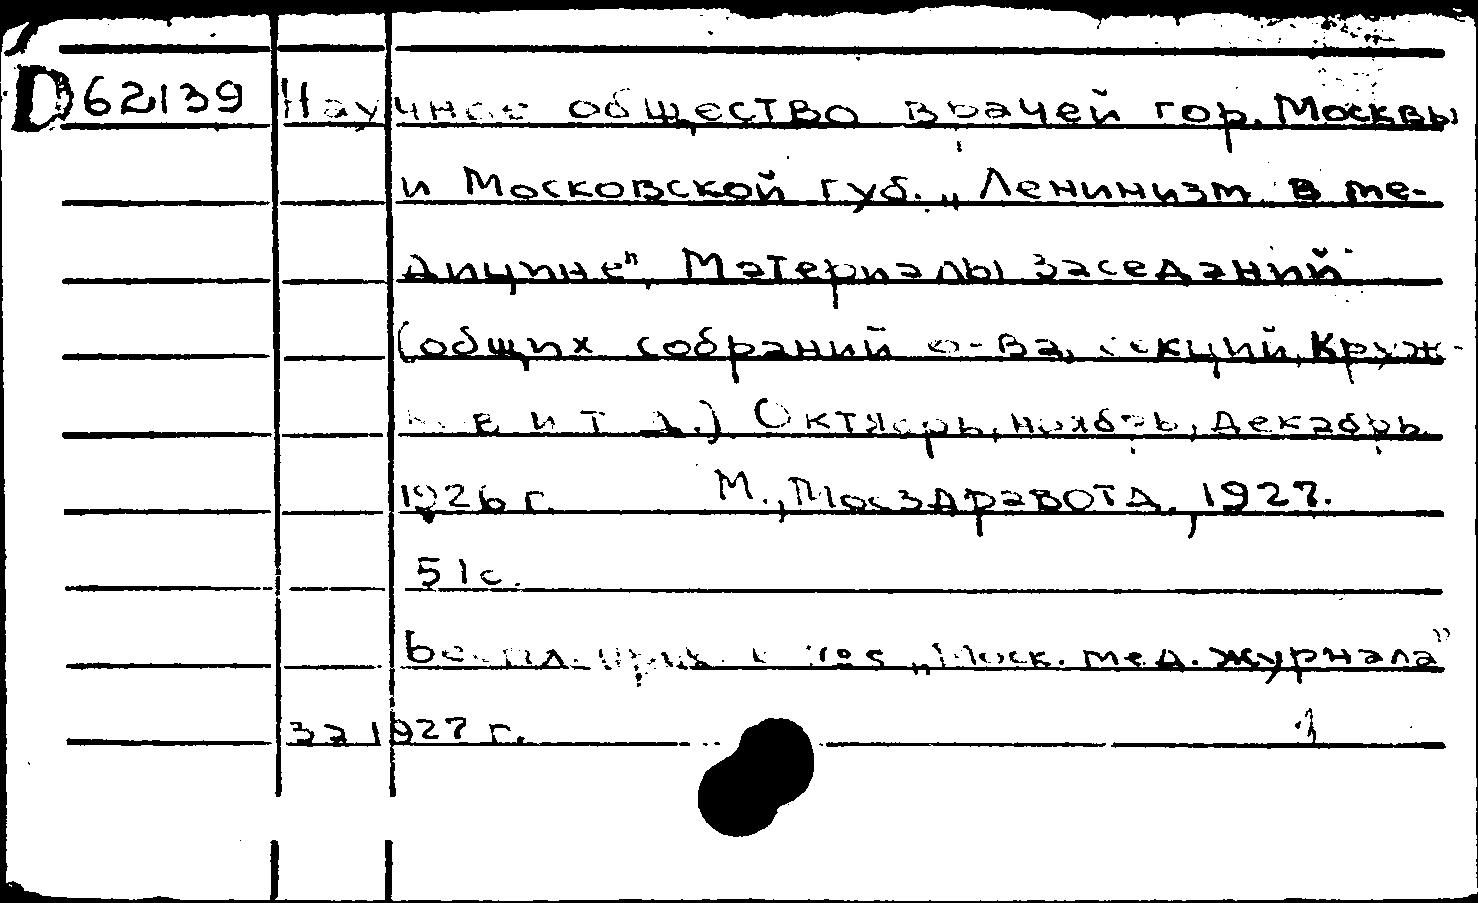 D62139 Научное общество врачей гор. Москвы
и Московской губ. „Ленинизм в ме-
дицине". Материалы заседаний
(общих собраний о-ва, секций, круж-
ков и т д.) Октябрь, ноябрь, декабрь
1926 г. М., Мосздравотд., 1927.
51 с.
Беспл. прил. к №5 „Моск. мед. журнала"
за 1927 г. 1